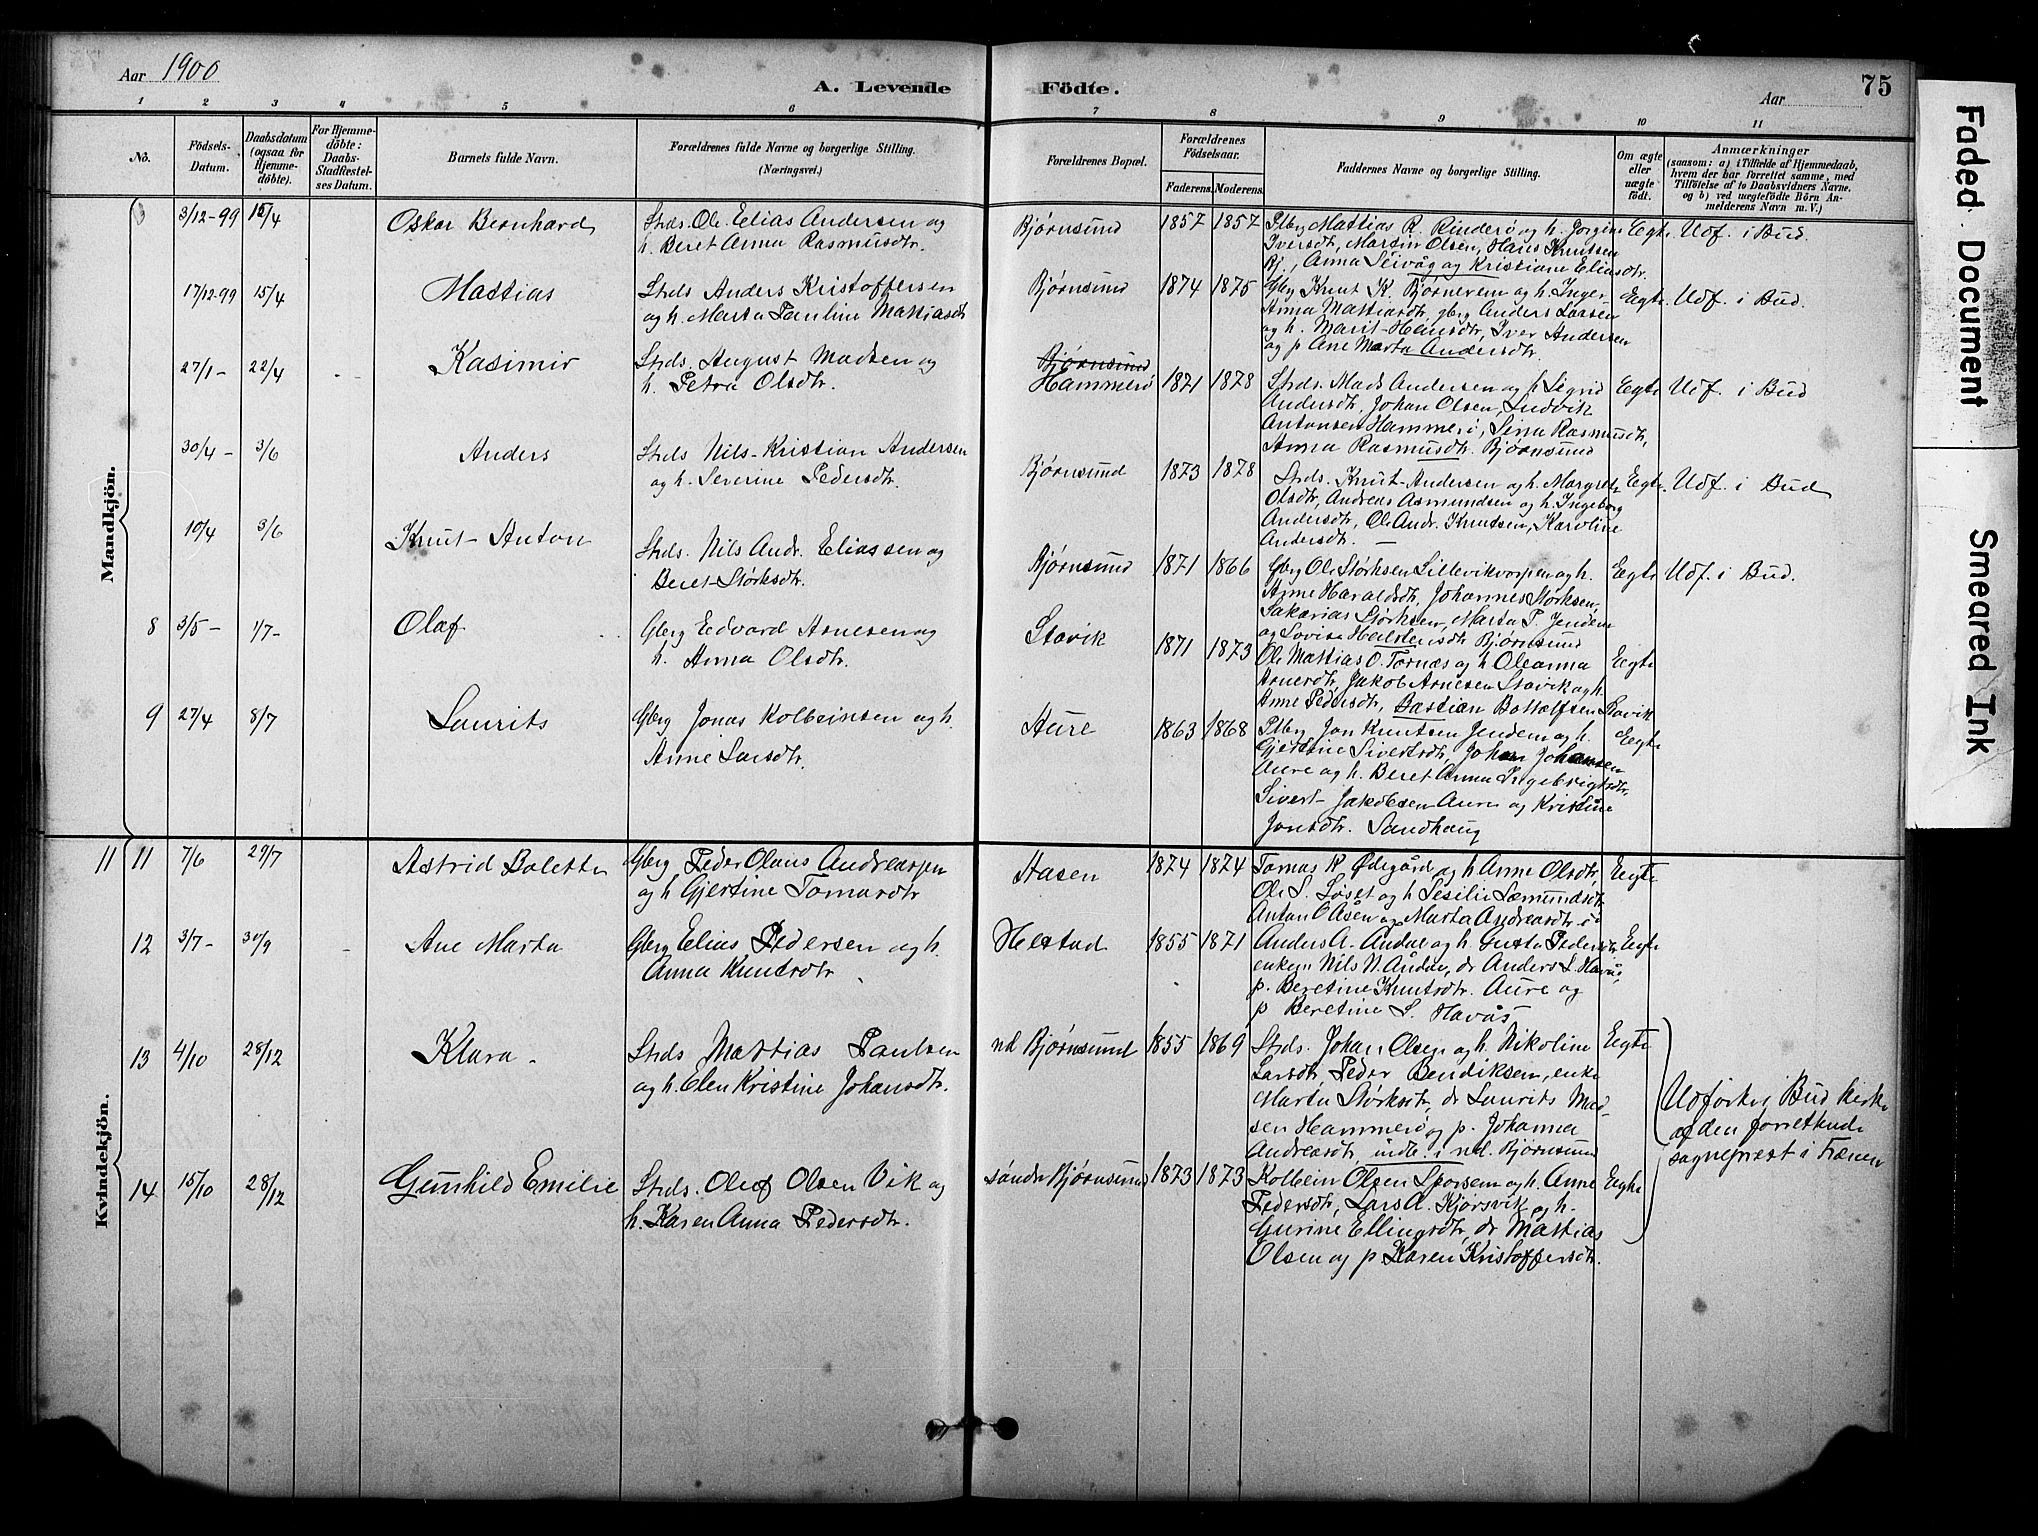 Aar 1900
A. Levende
Födte.
Aar
75
1 2 3 4 5 6 7 8 9 10 11
No.
Födsels-
Datum.
Daabsdatum
(ogsaa for
Hjemme-
döbte).
For Hjemme-
döbte:
Daabs-
Stadfæstel-
ses Datum.
Barnets fulde Navn.
Forældrenes fulde Navne og borgerlige Stilling.
(Næringsvei.)
Forældrenes Bopæl.
Forældrenes
Födselsaar.
Faderens. Moderens.
Faddernes Navne og borgerlige Stilling.
Om ægte
eller
uægte
födt.
Anmærkninger
(saasom: a) i Tilfælde af Hjemmedaab,
hvem der har forrettet samme, med
Tilföielse af to Daabsvidners Navne.
og b) ved uægtefödte Börn An-
melderens Navn m. V.)
Mandkjön.
3/12-99 15/4 Oskar Bernhard
Strds. Ole Elias Andersen og
h. Beret Anna Rasmusdtr.
Bjørnsund 1857 1857
Plbg Mattias R. Rinderø og h. Jorgine
Iversdtr, Martin Olsen, Hans Knutsen
Bj, Anna Seivåg og Kristiane Eliasdtr.
Egte Udf. i Bud.
17/12-99 15/4 Mattias
Strds Anders Kristoffersen
og h. Marta Pauline Mattiasdt
Bjørnsund 1874 1875
Gbg Knut K. Bjørnerem og h. Inger
Anna Mattiasdtr, gbrg Anders Larsen
og h. Marit Hansdtr, Iver Andersen
og p Ane Marta Andersdtr.
Egte Udf. i Bud.
27/1- 22/4 Kasimir
Strds. August Madsen og
h. Petra Olsdtr.
Bjørnsund
Hammerø 1871 1878
Strds. Mads Andersen og h Sigrid
Andersdtr, Johan Olsen, Ludvik
Antonsen Hammerø, Sina Rasmusdtr,
Anna Rasmusdtr. Bjørnsund
Egte Udf. i Bud
30/4- 3/6 Anders
Strds Nils-Kristian Andersen
og h. Severine Pedersdtr.
Bjørnsund 1873 1878
Strds. Knut Andersen og h. Margrete
Olsdtr, Andreas Asmundsen og h Ingeborg
Andersdtr, Ole Andr. Knutsen, Karoline
Andersdtr.
Egte. Udf. i Bud
10/4 3/6 Knut-Anton
Strds. Nils Andr. Eliassen og
Beret Størksdtr.
Bjørnsund 1871 1866
Gbrg Ole Størksen Lillevikvorpen og h.
Anne Haraldsdtr, Johannes Størksen,
Sakarias Størksen, Marta P. Jenden
og Lovise Halstensdtr Bjørnsund
Egte Udf. i Bud.
8 3/5- 1/7- Olaf
Gbrg Edvard Arnesen og
h. Anna Olsdtr.
Stavik 1871 1873
Ole Mattias O. Tornæs og h Oleanna
Arnesdtr, Jakob Arnesen Stavik og h.
Anne Pedersdtr, Bastian Bottolfsen Stavik
Egte
9 27/4 8/7 Laurits
Gbrg Jonas Kolbeinsen og h.
Anne Larsdtr.
Aure 1863 1868
Plbg Jon Knutsen Jenden og h.
Gjertine Sivertsdtr, Johan Johansen
Aure og h. Beret Anna Ingebrigtsdtr,
Sivert Jakobsen Aure og Kristine
Jonsdtr. Sandhaug
Egte
Kvindekjön.
11 11 7/6 29/7 Astrid Bolette
Gbrg Peder Olaus Andreassen
og h Gjertine Tomasdtr
Hasen 1874 1874
Tomas K Ødegård og h Anne Olsdtr,
Ole S. Løset og h Sesilie Sæmundsdtr
Anton O Åsen og Marta Andreasdtr
Egte
12 3/7- 30/9 Ane Marta
Gbrg Elias Pedersen og h.
Anna Knutsdtr.
Helstad 1855 1871
Anders A. Åndal og h. Gusta Pedersdtr,
enkem Nils N. Åndal, dr Anders L. Havås,
p. Beretine Knutsdtr. Aure og
p Beretine S. Havås
Egte
13 4/10 28/12 Klara.
Strds Mattias Paulsen
og h. Elen Kristine Johansdtr.
nd Bjørnsund 1855 1869
Strds. Johan Olsen og h. Nikoline
Larsdtr, Peder Bendiksen, enke
Marta Størksdtr, dr Laurits Mad-
sen Hammerø og p. Johanna
Andreasdtr, indb. i nd. Bjørnsund
Egte
Udførte i Bud kirke
af den forrettende
sogneprest i Frænen
14 15/10 28/12 Gunhild Emilie
Strds. Olaf Olsen Vik og
h. Karen Anna Pedersdtr.
søndr Bjørnsund 1873 1873
Kolbein Olsen Sporsem og h. Anne
Pedersdtr, Lars A. Kjørsvik og h.
Gurine Ellingsdtr, dr Mattias
Olsen og p Karen Kristoffersdtr.
Egte
Faded Document
Smeared Ink